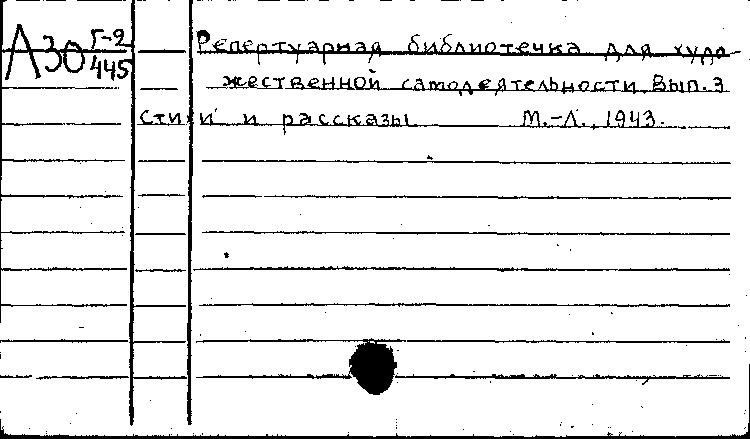 А30 Г-2
445
Репертуарная библиотечка для худо-
жественной самодеятельности. Вып. 3
Стихи и рассказы М.-Л., 1943.